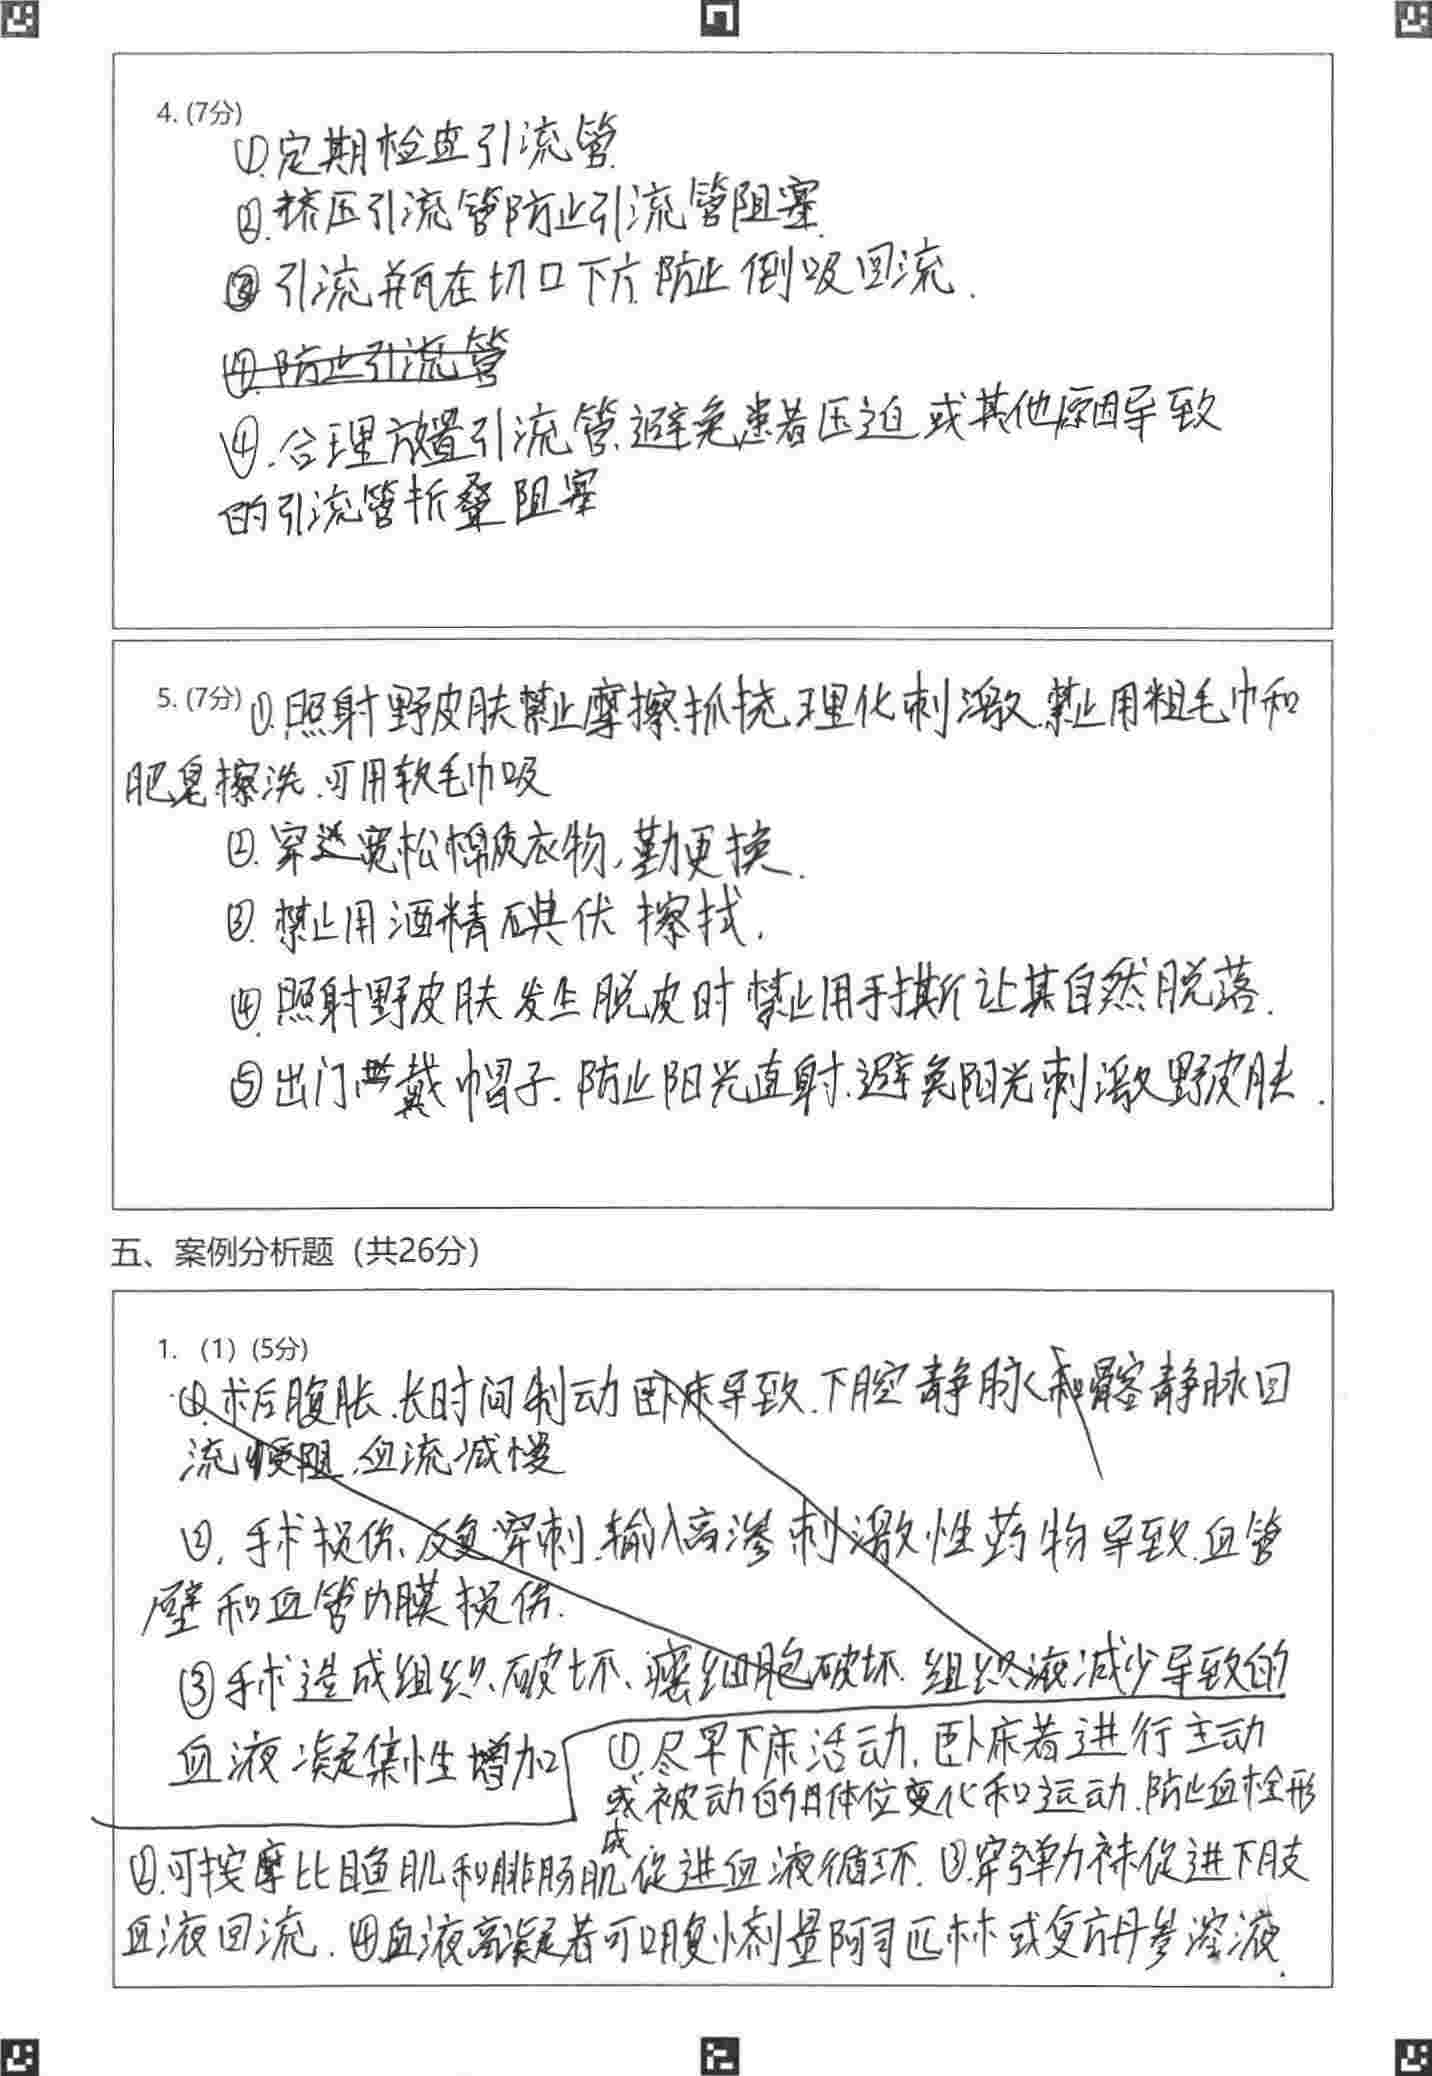 4. (7分)
①.定期检查引流管.
②.挤压引流管防止引流管阻塞.
③引流瓶在切口下方.防止倒吸回流.
④.防止引流管
④.合理放置引流管.避免患者压迫或其他原因导致
的引流管折叠阻塞
5. (7分) ①.照射野皮肤禁止摩擦.抓挠.理化刺激.禁止用粗毛巾和
肥皂擦洗.可用软毛巾吸
②.穿透宽松棉质衣物,勤更换.
③.禁止用酒精碘伏擦拭.
④.照射野皮肤发生脱皮时禁止用手撕让其自然脱落.
⑤出门戴帽子.防止阳光直射.避免阳光刺激野皮肤.
五、案例分析题（共26分）
1.（1）(5分)
①.术后腹胀.长时间制动卧床导致.下腔静脉和髂静脉回
流受阻.血流减慢
②.手术损伤、反复穿刺.输入高渗刺激性药物导致.血管
壁和血管内膜损伤.
③手术造成组织破坏、癌细胞破坏.组织液减少导致的
血液凝集性增加
①.尽早下床活动,卧床者进行主动
或被动的体位变化和运动.防止血栓形
成
②.可按摩比目鱼肌和腓肠肌促进血液循环.③.穿弹力袜促进下肢
血液回流.④血液高凝者可口服小剂量阿司匹林或复方丹参溶液.